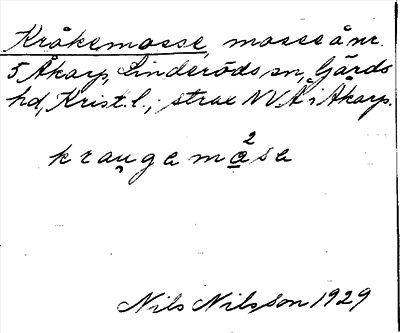 Kråkemosse, mosse å nr.
5 Åkarp, Linderöds sn, Gärds
hd, Krist. l.; strax NV Å i Åkarp.
2
kraugamåsa
Nils Nilsson 1929